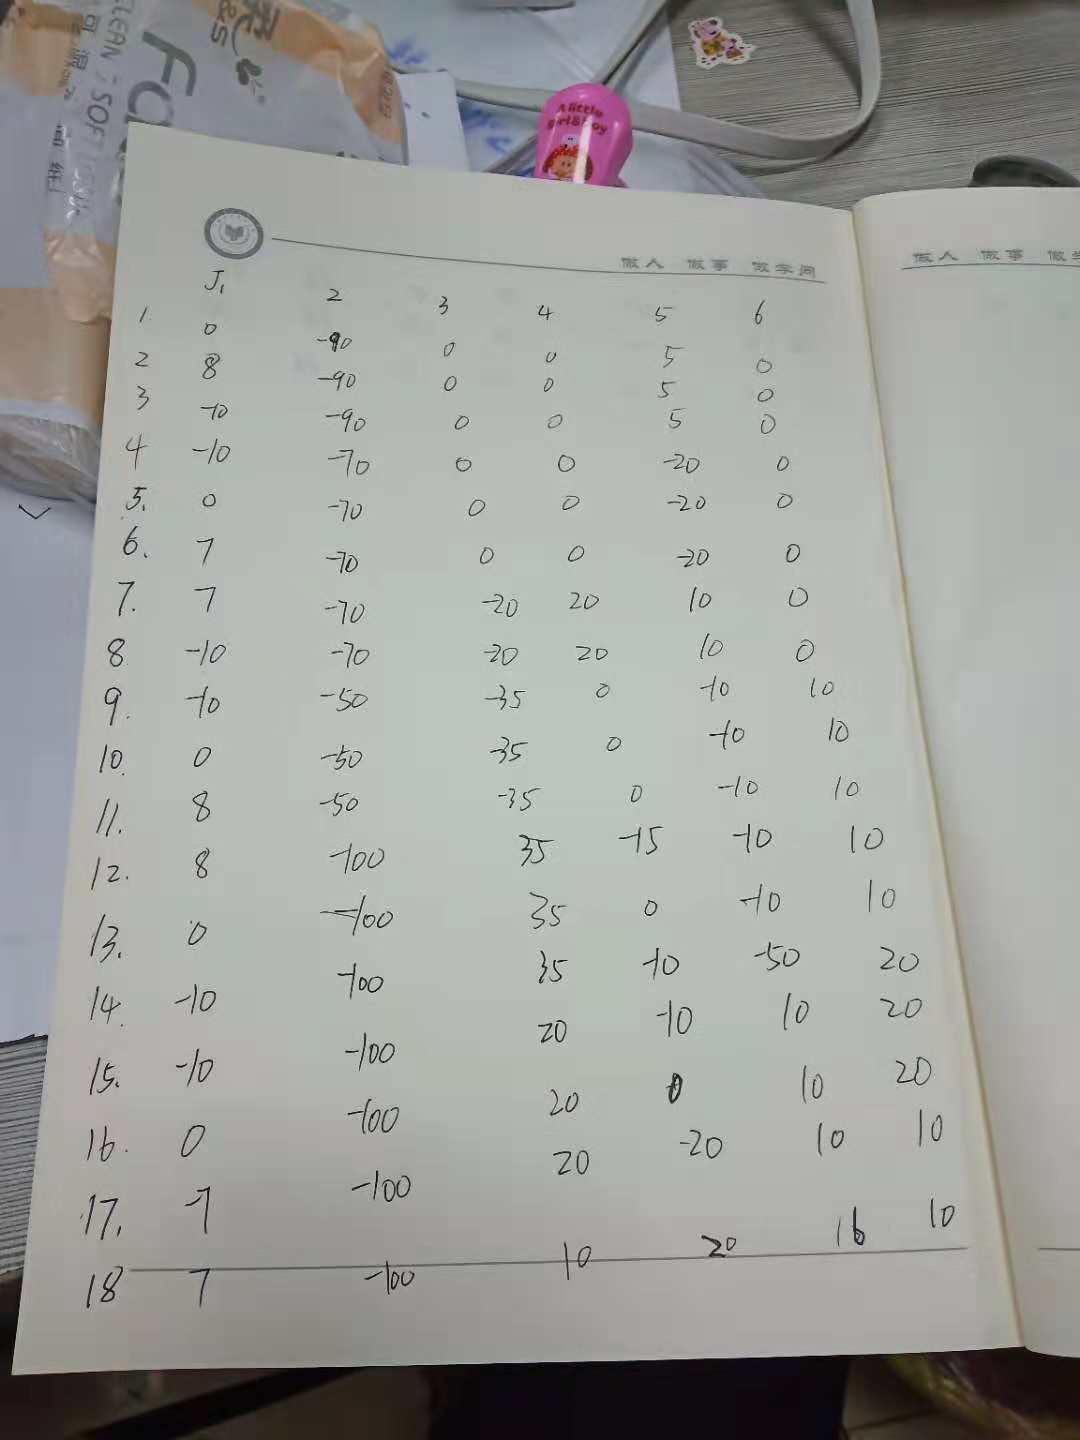 CLEAN;SOFT
Fa
A little
Girl&Boy
做人 做事 做学问
做人 做事 做学
J1 2 3 4 5 6
1. 0 -90 0 0 5 0
2 8 -90 0 0 5 0
3 -10 -90 0 0 5 0
4 -10 -70 0 0 -20 0
5. 0 -70 0 0 -20 0
6. 7 -70 0 0 -20 0
7. 7 -70 -20 20 10 0
8 -10 -70 -20 20 10 0
9. -10 -50 -35 0 -10 10
10. 0 -50 -35 0 -10 10
11. 8 -50 -35 0 -10 10
12. 8 -100 35 -15 -10 10
13. 0 -100 35 0 -10 10
14. -10 -100 35 -10 -50 20
15. -10 -100 20 -10 10 20
16. 0 -100 20 0 10 20
17. -7 -100 20 -20 10 10
18 7 -100 10 20 16 10